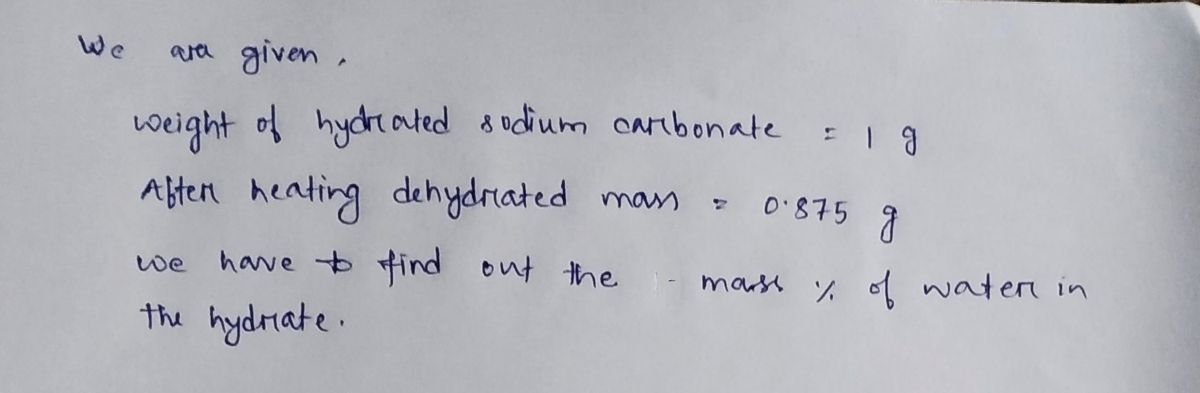 We are given,
weight of hydrated sodium carbonate = 1 g
After heating dehydrated mass = 0.875 g
we have to find out the mass % of water in
the hydrate.